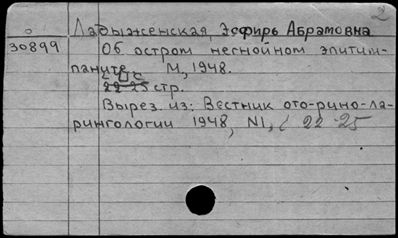 2
Ладыженская, Эсфирь Абрамовна
30899 Об остром негнойном эпитим-
паните М, 1948.
22-25 стр.
Вырез. из: Вестник ото-рино-ла-
рингологии 1948, N1, с 22-25